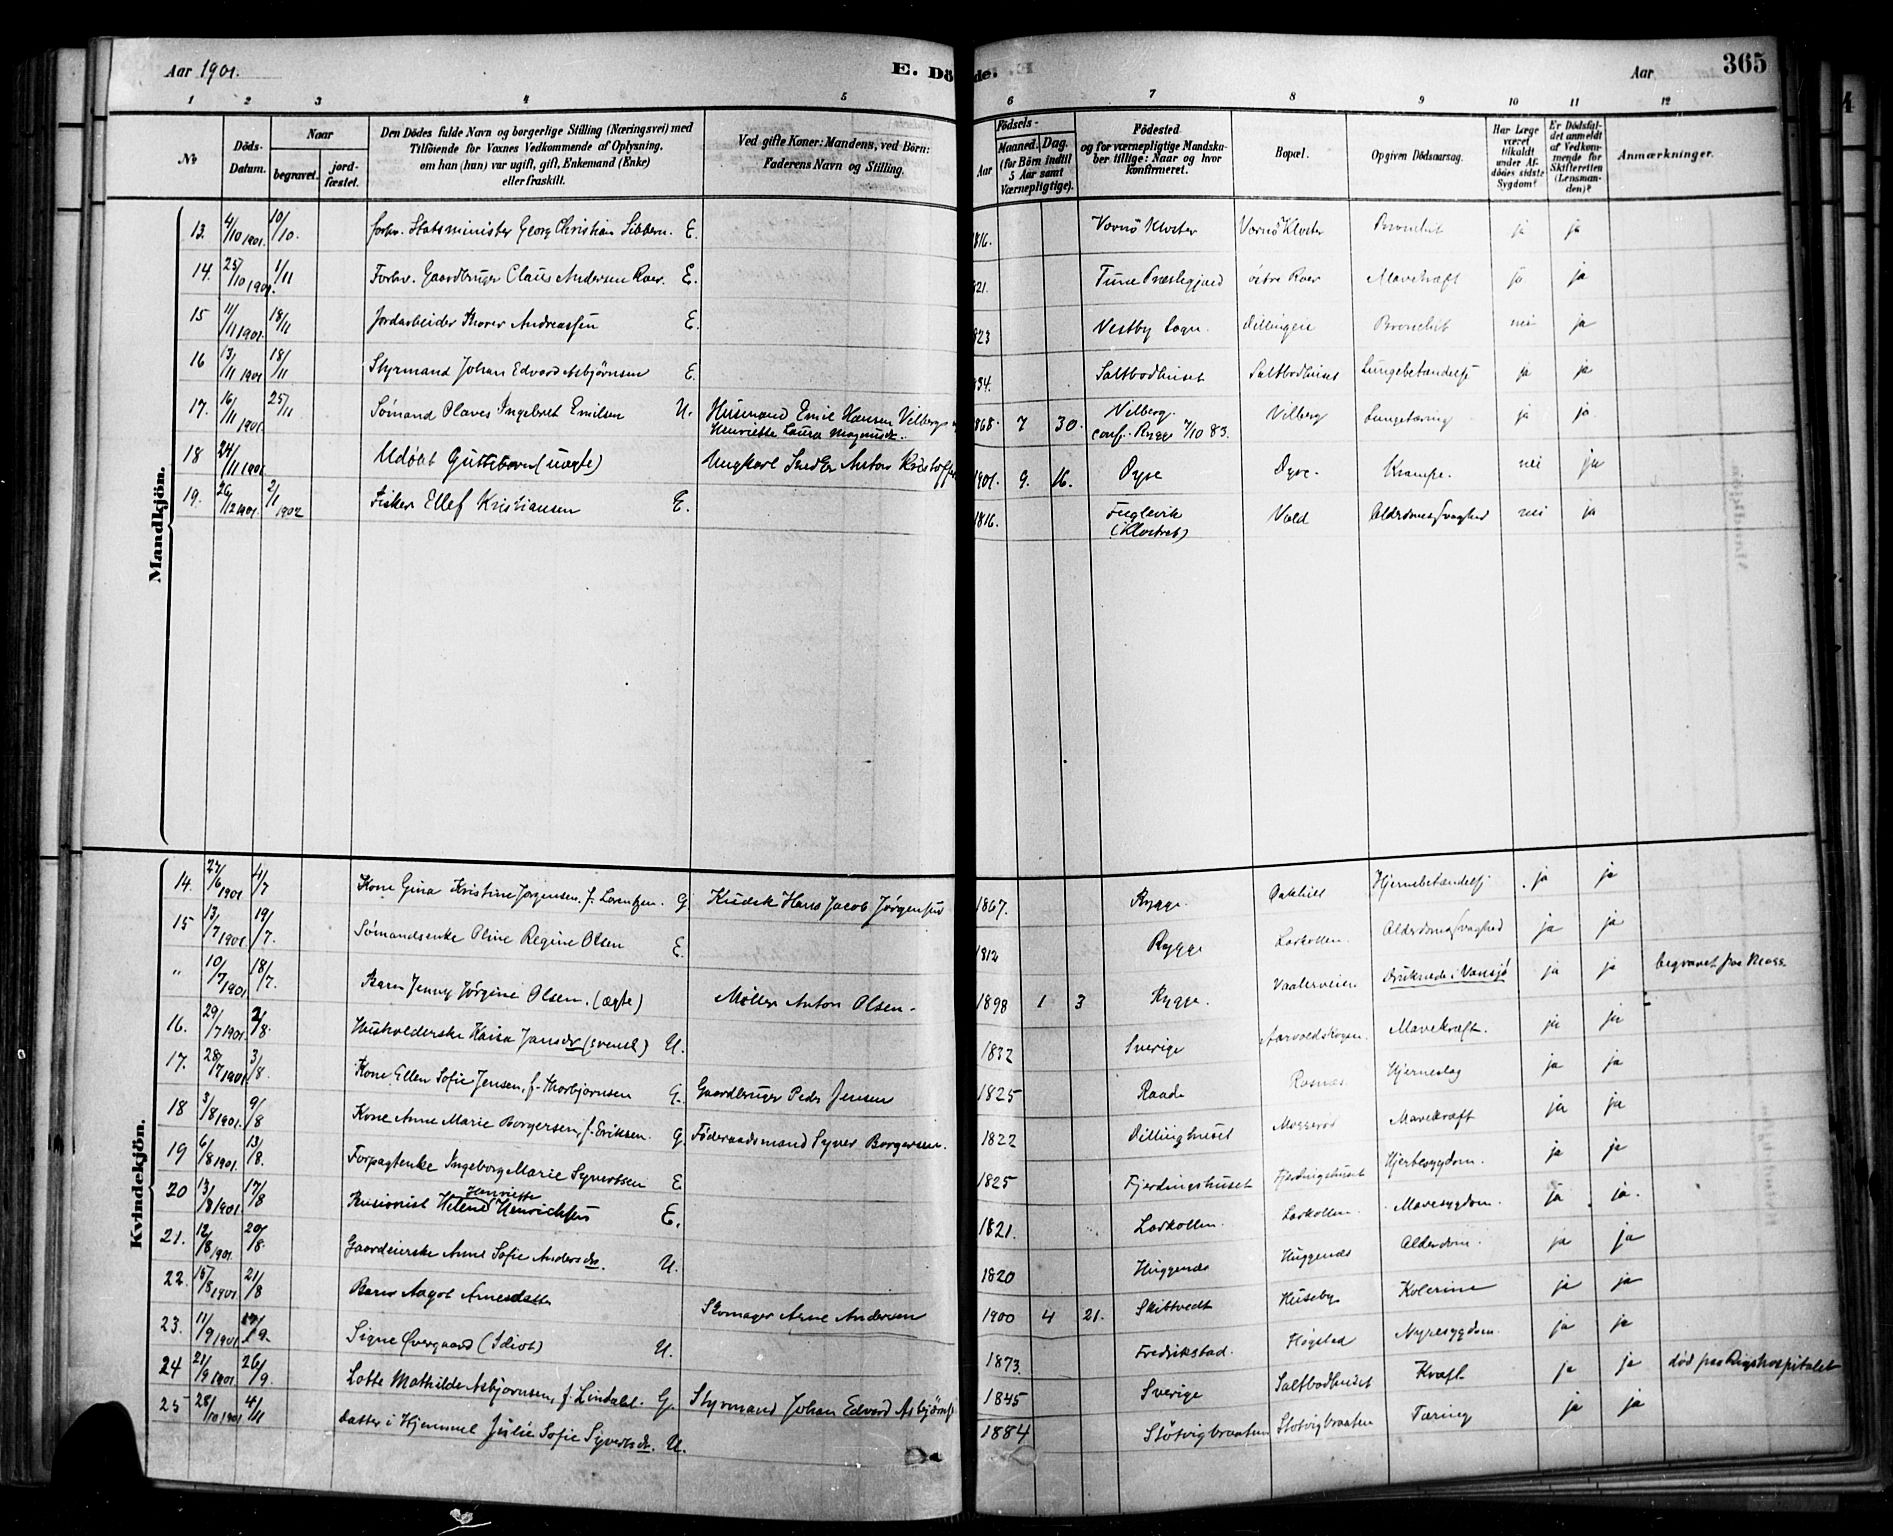 Aar 1901.
E. Döde.
Aar
365
1 2 3 4 5 6 7 8 9 10 11 12
No
Döds-Datum.
Naar
begravet.
jord-fæstet.
Den Dödes fulde Navn og borgerlige Stilling (Næringsvei) med
Tilföiende for Voxnes Vedkommende af Oplysning.
om han (hun) var ugift, gift, Enkemand (Enke)
eller fraskilt.
Ved gifte Koner: Mandens, ved Börn:
Faderens Navn og Stilling.
Födsels-
Aar
Maaned. Dag.
(for Börn indtil
5 Aar samt
Værnepligtige).
Födested
og for værnepligtige Mandska-
ber tillige: Naar og hvor
konfirmeret.
Bopæl.
Opgiven Dödsaarsag.
Har Læge
været
tilkaldt
under Af-
dödes sidste
Sygdom?
Er Dödsfal-
det anmeldt
af Vedkom-
mende for
Skifteretten
(Lensman-
den)?
Anmærkninger.
Mandkjön.
13. 4/10 1901. 10/10. forhv. Statsminister Georg Christian Sibbern. E. 1816. Værnö Kloster Værnö Kloster Bronchit ja ja
14. 25/10 1901. 1/11 Forhv. Gaardbruger Claus Andersen Roer. E. 821. Tune Præstegjæld östre Roer Mavekræft ja ja
15 11/11 1901. 18/11 Jordarbeider Thorer Andreassen E. 823 Vestby Sogn. Dillingeie Bronchit nei ja
16 13/11 1901 18/11 Styrmand Johan Edvard Asbjørnsen E. 834. Saltbodhuset Saltbodhuset Lungebetændelse ja ja
17. 16/11 1901. 25/11 Sömand Olaves Ingebret Emilsen U. Husmand Emil Hansen Vilberg og
Henriette Laura Magnusdr. 1868. 7 30. Vilberg.
conf. Rygge 7/10 83. Vilberg Lungetæring ja ja
18 24/11 1901. Udöbt Guttebarn (uægte) Ungkarl Anton Kristoffe 1901. 9. 16. Dyre Dyre. Krampe. nei ja
19. 26/12 1901. 2/1 1902 Fisker Ellef Kristiansen E. 1816. Fuglevik
(Klostret) Vald Alderdomssvaghed nei ja
Kvindekjön.
14. 27/6 1901 4/7 Kone Gina Kristine Jørgensen, f. Lorentzen. G Kudsk Hans Jacob Jørgensen 1867. Rygge. Oakhill Hjernebetændelse ja ja
15 13/7 1901. 19/7. Sömandsenke Oline Regine Olsen E. 1812 Rygge Larkollen. Alderdomssvaghed ja ja
" 10/7 1901 18/7. Barn Jenny Jørgine Olsen. (ægte) Møller Anton Olsen. 1898 1 3 Rygge. Vaalerveien Druknede i Vansjø ja ja begravet paa Moss.
16. 29/7 1901. 2/8. Husholderske Kaisa Jansdr (svensk) U. 1832 Sverige Mavekræft. ja ja
17. 28/7 1901 3/8. Kone Ellen Sofie Jensen, f. Thorbjørnsen G. Gaardbruger Peder Jensen 1825 Raade Rosnæs Hjerneslag ja ja
18 3/8 1901. 9/8 Kone Anne Marie Borgersen, f. Eriksen. G Föderaadsmand Syver Borgersen. 1822 Dillinghuset Mosserød Mavekræft ja ja
19 6/8 1901. 13/8. Forpagtenke Ingeborg Marie Syvertsen E 1825 Fjerdingshuset Fjerdingshuset Hjertesygdom. ja ja
20 13/8 1901. 17/8 Pensionist Helene Henriette Henrichsen E. 1821. Larkollen. Larkollen. Mavesygdom. ja ja.
21. 12/8 1901. 20/8. Gaardeierske Anne Sofie Andersdr. U. 1820 Huggenæs Huggenæs Alderdom. ja ja
22. 15/8 1901 21/8 Barn Aagot Arnesdatt Skomager Arne Andersen 1900 4 21. Skibtvedt Huseby Kolerine ja ja
23. 11/9 1901 17/9. Signe Øvergaard (Idiot) U. 1873. Fredrikstad. Høgstad Nyresygdom. ja ja
24 21/9 1901. 26/9. Lotte Mathilde Asbjørnsen, f. Lindahl. G. Styrmand Johan Edvard Asbjørns 1845 Sverige Saltbodhuset Kræft ja ja død paa Rigshospitalet
25 28/10 1901 4/11 Datter i Hjemmet Julie Sofie Syvertsdr. U. 1884 Støtvigbraaten Støtvigbraaten Tæring ja ja